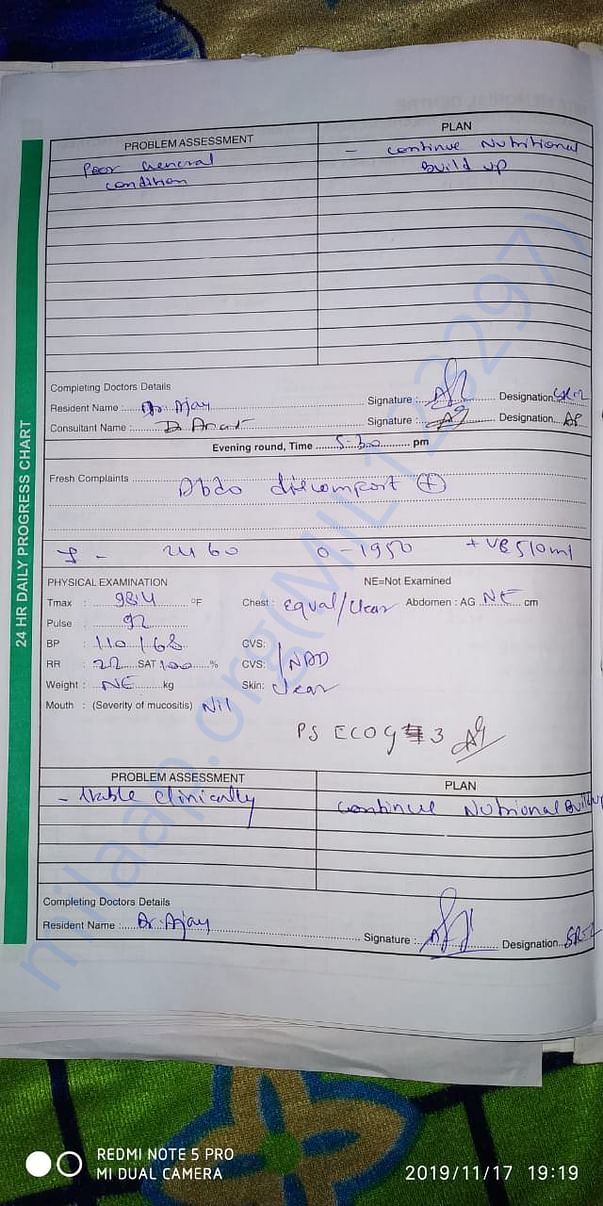 24 HR DAILY PROGRESS CHART
PROBLEM ASSESSMENT PLAN
Poor General - continue Nutritional
condition Build up
Completing Doctors Details
Resident Name : Dr. Ajay Signature : Designation
Consultant Name : Signature : Designation AP
Evening round, Time 5.30 pm
Fresh Complaints Abdo discomfort (+)
I - 2460 0-1950 +VB 510ml
PHYSICAL EXAMINATION NE=Not Examined
Tmax : 98.4 °F Chest : equal/clear Abdomen : AG NE cm
Pulse : 92
BP : 110/68 CVS:
RR : 22 SAT 100 % CVS: NAD
Weight : NE kg Skin: clear
Mouth : (Severity of mucositis) Nil
PS ECOG 3
PROBLEM ASSESSMENT PLAN
- Stable clinically continue Nutrional Build up
Completing Doctors Details
Resident Name : Dr. Ajay Signature : Designation
milaap.org(MIL123297)
REDMI NOTE 5 PRO
MI DUAL CAMERA 2019/11/17 19:19